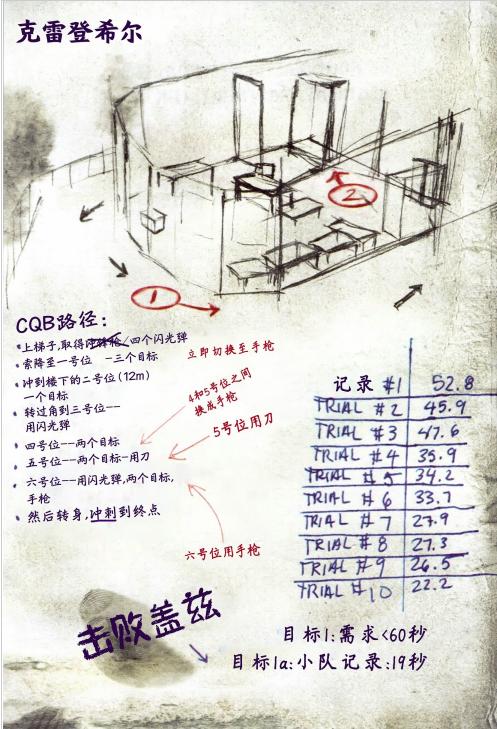 克雷登希尔
①
②
CQB路径:
·上梯子,取得冲锋枪/四个闪光弹
立即切换至手枪
·索降至一号位 -三个目标
·冲到楼下的二号位(12m)
一个目标
4和5号位之间
换成手枪
·转过角到三号位--
用闪光弹
5号位用刀
·四号位--两个目标
·五号位--两个目标-用刀
·六号位--用闪光弹,两个目标,
手枪
·然后转身,冲刺到终点
六号位用手枪
记录 #1 52.8
TRIAL #2 45.9
TRIAL #3 47.6
TRIAL #4 35.9
TRIAL #5 34.2
TRIAL #6 33.7
TRIAL #7 27.9
TRIAL #8 27.3
TRIAL #9 26.5
TRIAL #10 22.2
击败盖兹
目标1:需求<60秒
目标1a:小队记录:19秒